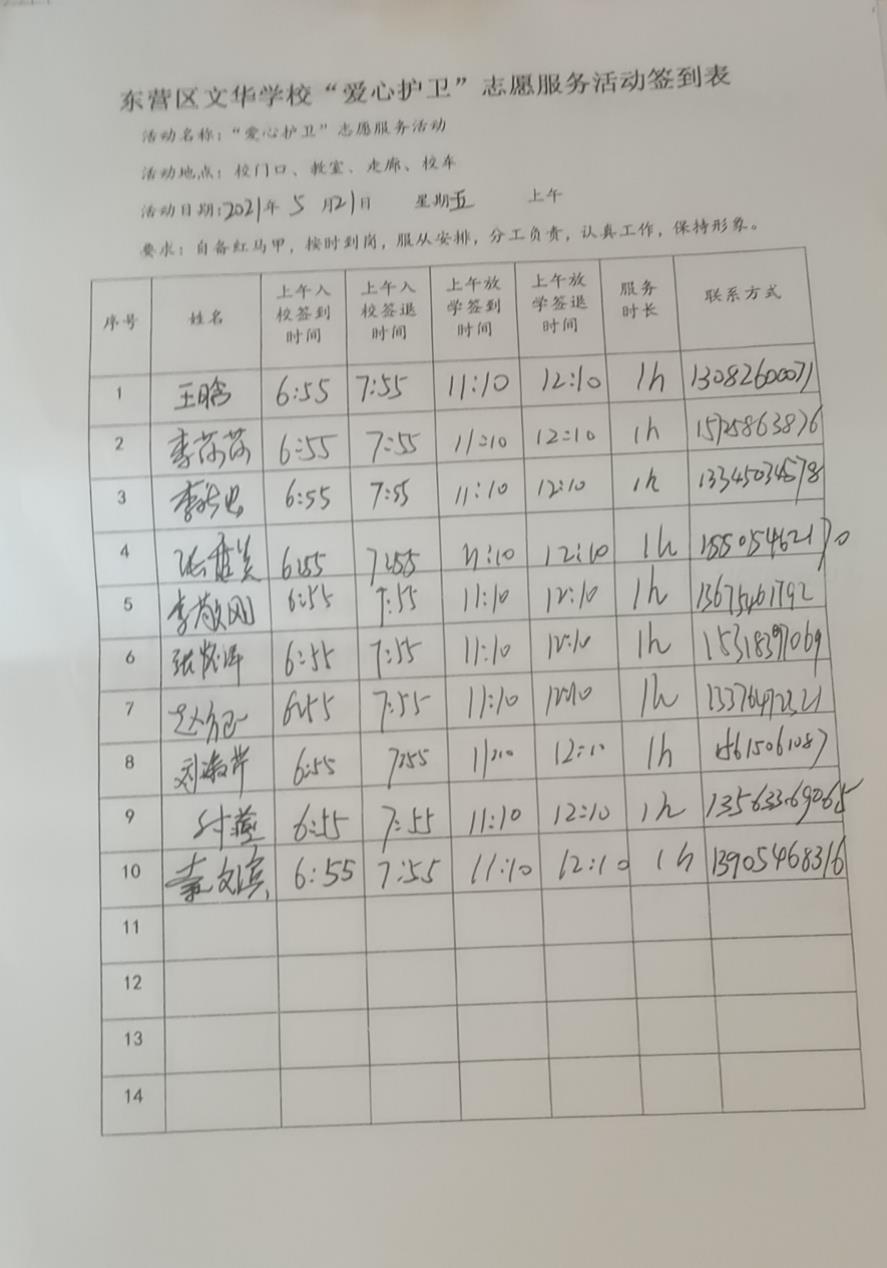 东营区文华学校“爱心护卫”志愿服务活动签到表
活动名称：“爱心护卫”志愿服务活动
活动地点：校门口、教室、走廊、校车
活动日期：2021年 5 月21日 星期五 上午
要求：自备红马甲，按时到岗，服从安排，分工负责，认真工作，保持形象。
序号 姓名 上午入校签到时间 上午入校签退时间 上午放学签到时间 上午放学签退时间 服务时长 联系方式
1 王晗 6:55 7:55 11:10 12:10 1h 13082600071
2 李莎莎 6:55 7:55 11:10 12:10 1h 15725863876
3 6:55 7:55 11:10 12:10 1h 13345034578
4 6:55 7:55 11:10 12:10 1h 15505462170
5 李敬刚 6:55 7:55 11:10 12:10 1h 13675461792
6 6:55 7:55 11:10 12:10 1h 15318397069
7 6:55 7:55 11:10 12:10 1h
8 6:55 7:55 11:10 12:10 1h
9 付莹 6:55 7:55 11:10 12:10 1h
10 文滨 6:55 7:55 11:10 12:10 1h 13905468316
11
12
13
14